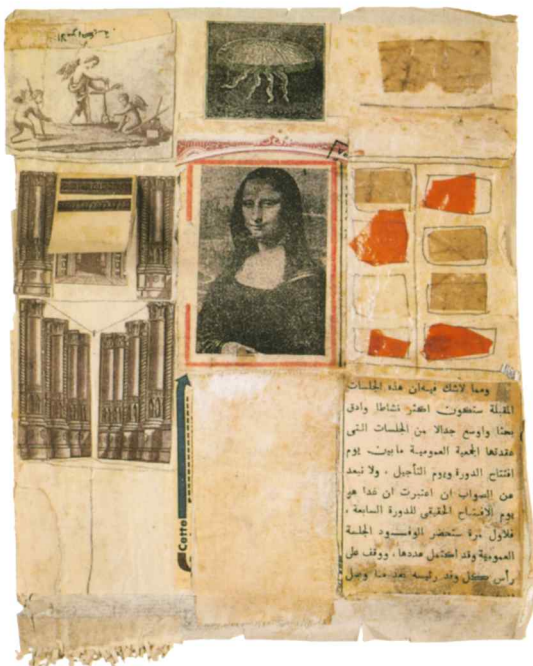 ومما لاشك فيه ان هذه الجلسات
المقبلة ستكون اكثر نشاطا وادق
بحثا واوسع جدالا من الجلسات التى
عقدتها الجمعية العمومية مابين يوم
افتتاح الدورة ويوم التأجيل ، ولا نبعد
عن السواب ان اعتبرت ان غدا هو
يوم الافتتاح الحقيقى للدورة السابعة ،
فلاول مرة ستحضر الوفــود الجلسة
العمومية وقد اكتمل عددها ، ووقف على
رأس كل وفد رئيسه بعد
Cette